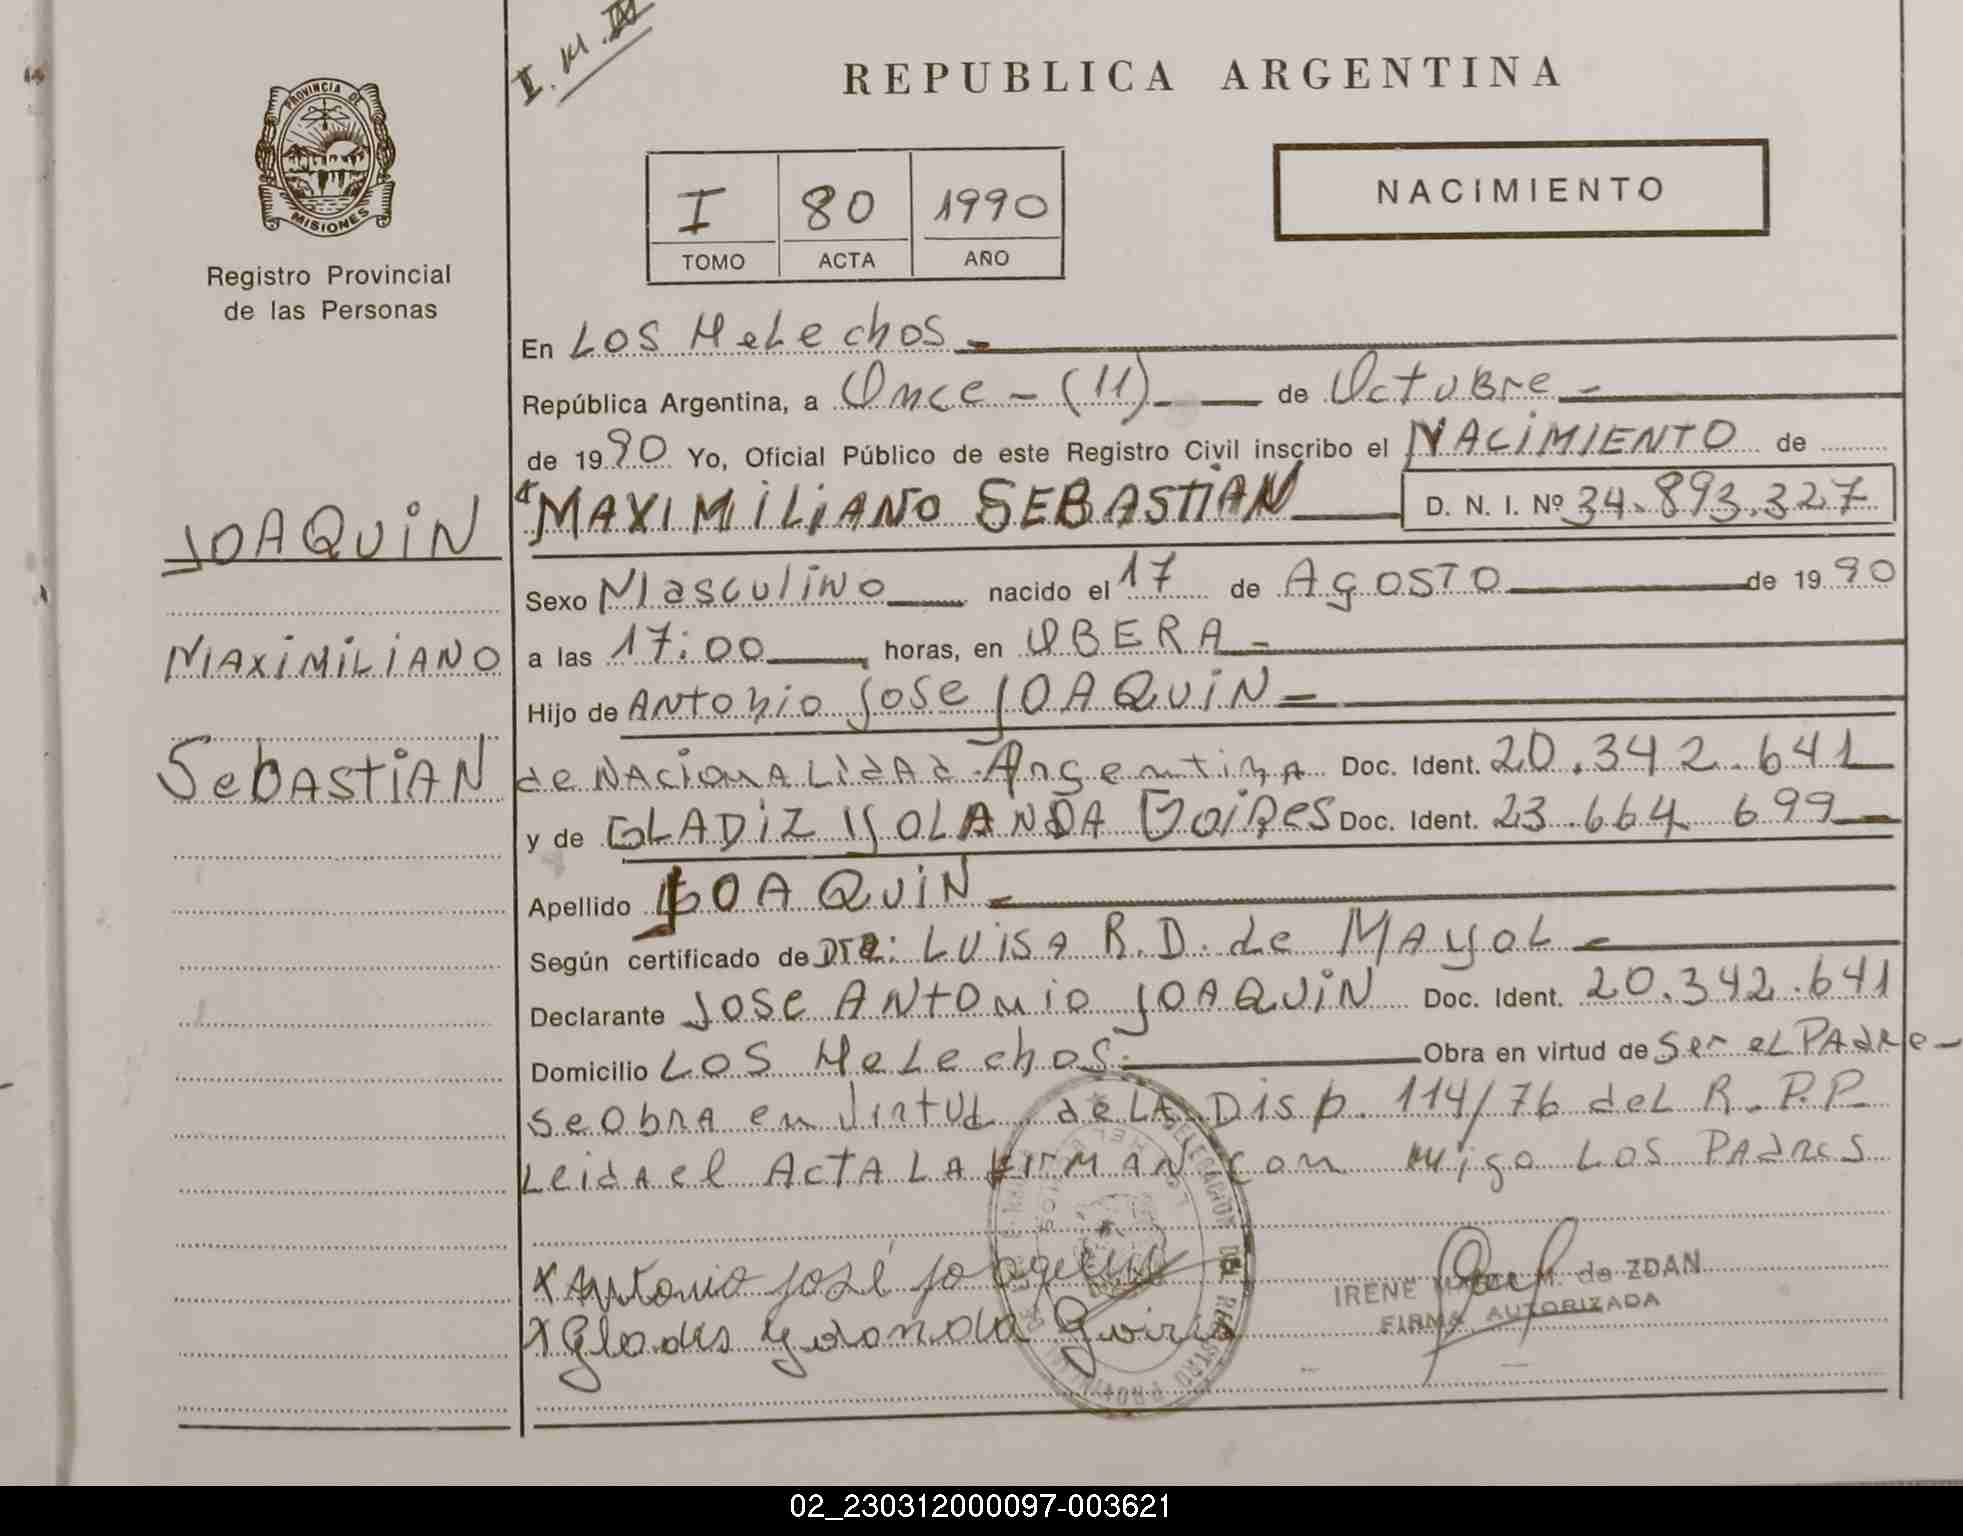 I. M. IV
REPUBLICA ARGENTINA
PROVINCIA DE
MISIONES
Registro Provincial
de las Personas
I 80 1990
TOMO ACTA AÑO
NACIMIENTO
En LOS HeLechos
República Argentina, a Once - (11) de Octubre
de 1990 Yo, Oficial Público de este Registro Civil inscribo el NACIMIENTO de
MAXIMILIANO SEBASTIAN D. N. I. Nº 34.893.327
JOAQUIN
MAXIMILIANO
SeBASTIAN
Sexo Masculino nacido el 17 de AgOSTO de 1990
a las 17:00 horas, en OBERA
Hijo de ANtonio Jose JOAQUIN
de NACionALidAd Argentina Doc. Ident. 20.342.641
y de GLADIZ YOLANDA Doc. Ident. 23.664 699
Apellido JOAQUIN
Según certificado de Dra: LUISA R.D. de MAyOL
Declarante JOSe ANtOnio JOAQUIN Doc. Ident. 20.342.641
Domicilio LOS HeLechos Obra en virtud de Ser eL PAdRe
Se ObRA en VirtUd de LA Disp. 114/76 deL R.P.P.
Leida el ActA LA FIRMAN con migo LOS PAdRes
X Antonio José Joaquin
X Gladis Yolanda
DELEGACION DEL REGISTRO PROVINCIAL
IRENE M. de ZDAN
FIRMA AUTORIZADA
02_230312000097-003621